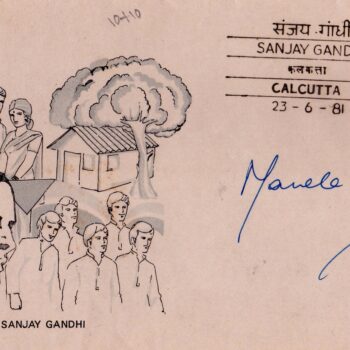 10-410
संजय गांधी
SANJAY GANDH
कलकत्ता
CALCUTTA
23 - 6 - 81
SANJAY GANDHI